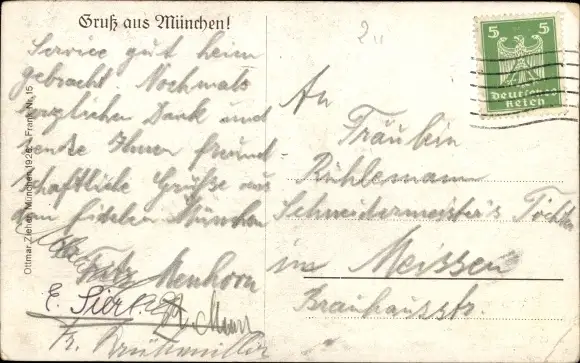 Gruß aus München!
Service gut heim
gebracht. Nochmals
herzlichen Dank und
sende Ihnen freund
schaftliche Grüße aus
dem fidelen München
Fritz Neuhorn
E. Sier
Fr.
An
Fräulein
Rühlemann
Schneidermeister's Tochter
in Meissen
Brauhausstr.
5 5
Deutsches
Reich
Ottmar Zieher, München, 1926. Frank Nr. 15